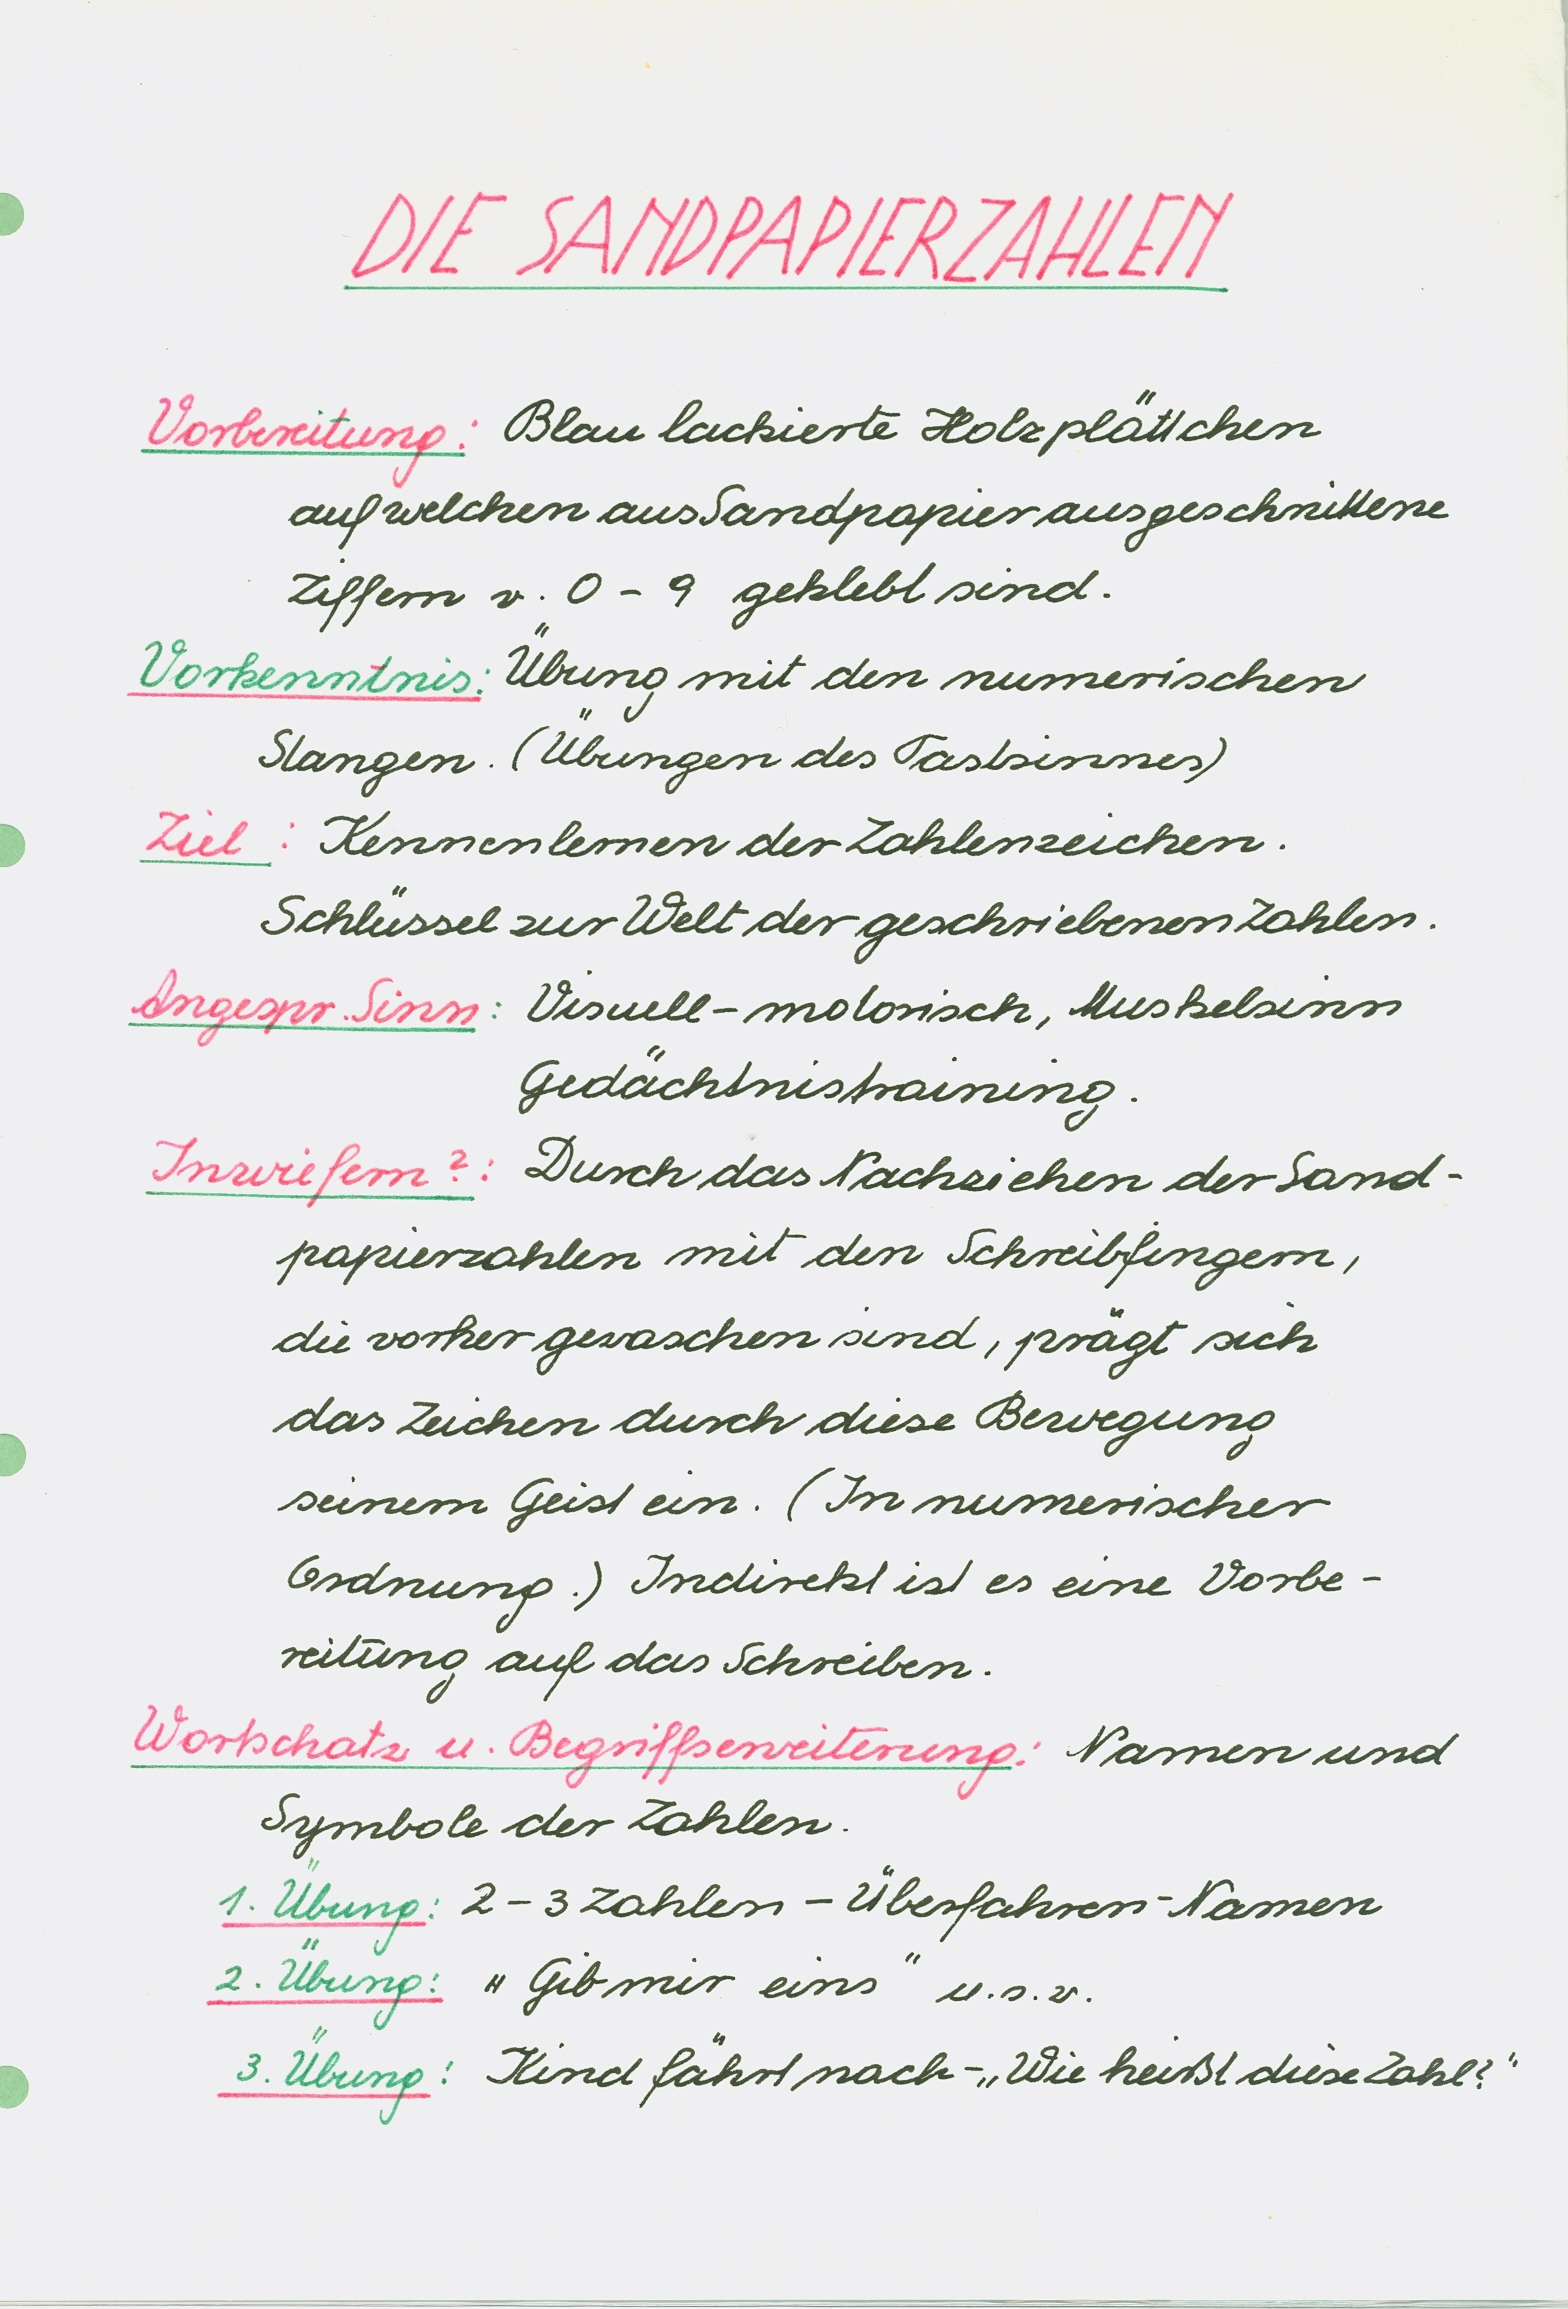 DIE SANDPAPIERZAHLEN
Vorbereitung: Blau lackierte Holzplättchen
auf welchen aus Sandpapier ausgeschnittene
Ziffern v. 0 - 9 geklebt sind.
Vorkenntnis: Übung mit den numerischen
Stangen. (Übungen des Tastsinnes)
Ziel: Kennenlernen der Zahlenzeichen.
Schlüssel zur Welt der geschriebenen Zahlen.
Angespr. Sinn: Visuell - motorisch, Muskelsinn
Gedächtnistraining.
Inwiefern?: Durch das Nachziehen der Sand-
papierzahlen mit den Schreibfingern,
die vorher gewaschen sind, prägt sich
das Zeichen durch diese Bewegung
seinem Geist ein. (In numerischer
Ordnung.) Indirekt ist es eine Vorbe-
reitung auf das Schreiben.
Wortschatz u. Begriffserweiterung: Namen und
Symbole der Zahlen.
1. Übung: 2 - 3 Zahlen - Überfahren - Namen
2. Übung: „Gib mir eins" u.s.w.
3. Übung: Kind fährt nach - „Wie heißt diese Zahl?"